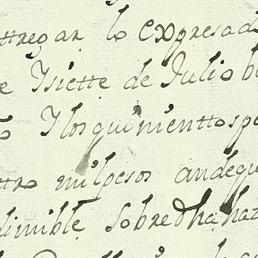 ttregar lo expresad
e Ysiette de Julio
Ylosquinienttospe
ttro milpesos andequ
dimible Sobredhahaz